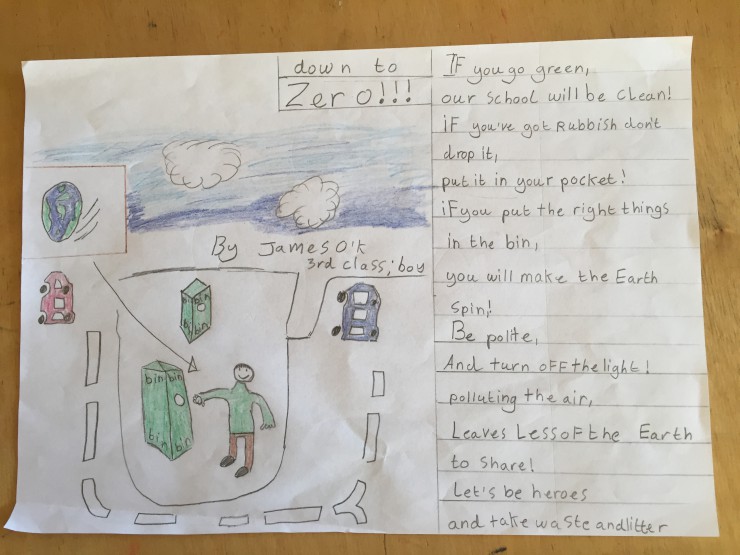 down to
Zero!!!
By James O'K
3rd class; boy
bin bin
bin bin
bin bin
bin bin
IF you go green,
our School will be clean!
iF you've got Rubbish don't
drop it,
put it in your pocket!
iF you put the right things
in the bin,
you will make the Earth
Spin!
Be polite,
And turn oFF the light!
polluting the air,
Leaves Less oF the Earth
to share!
Let's be heroes
and take waste and litter